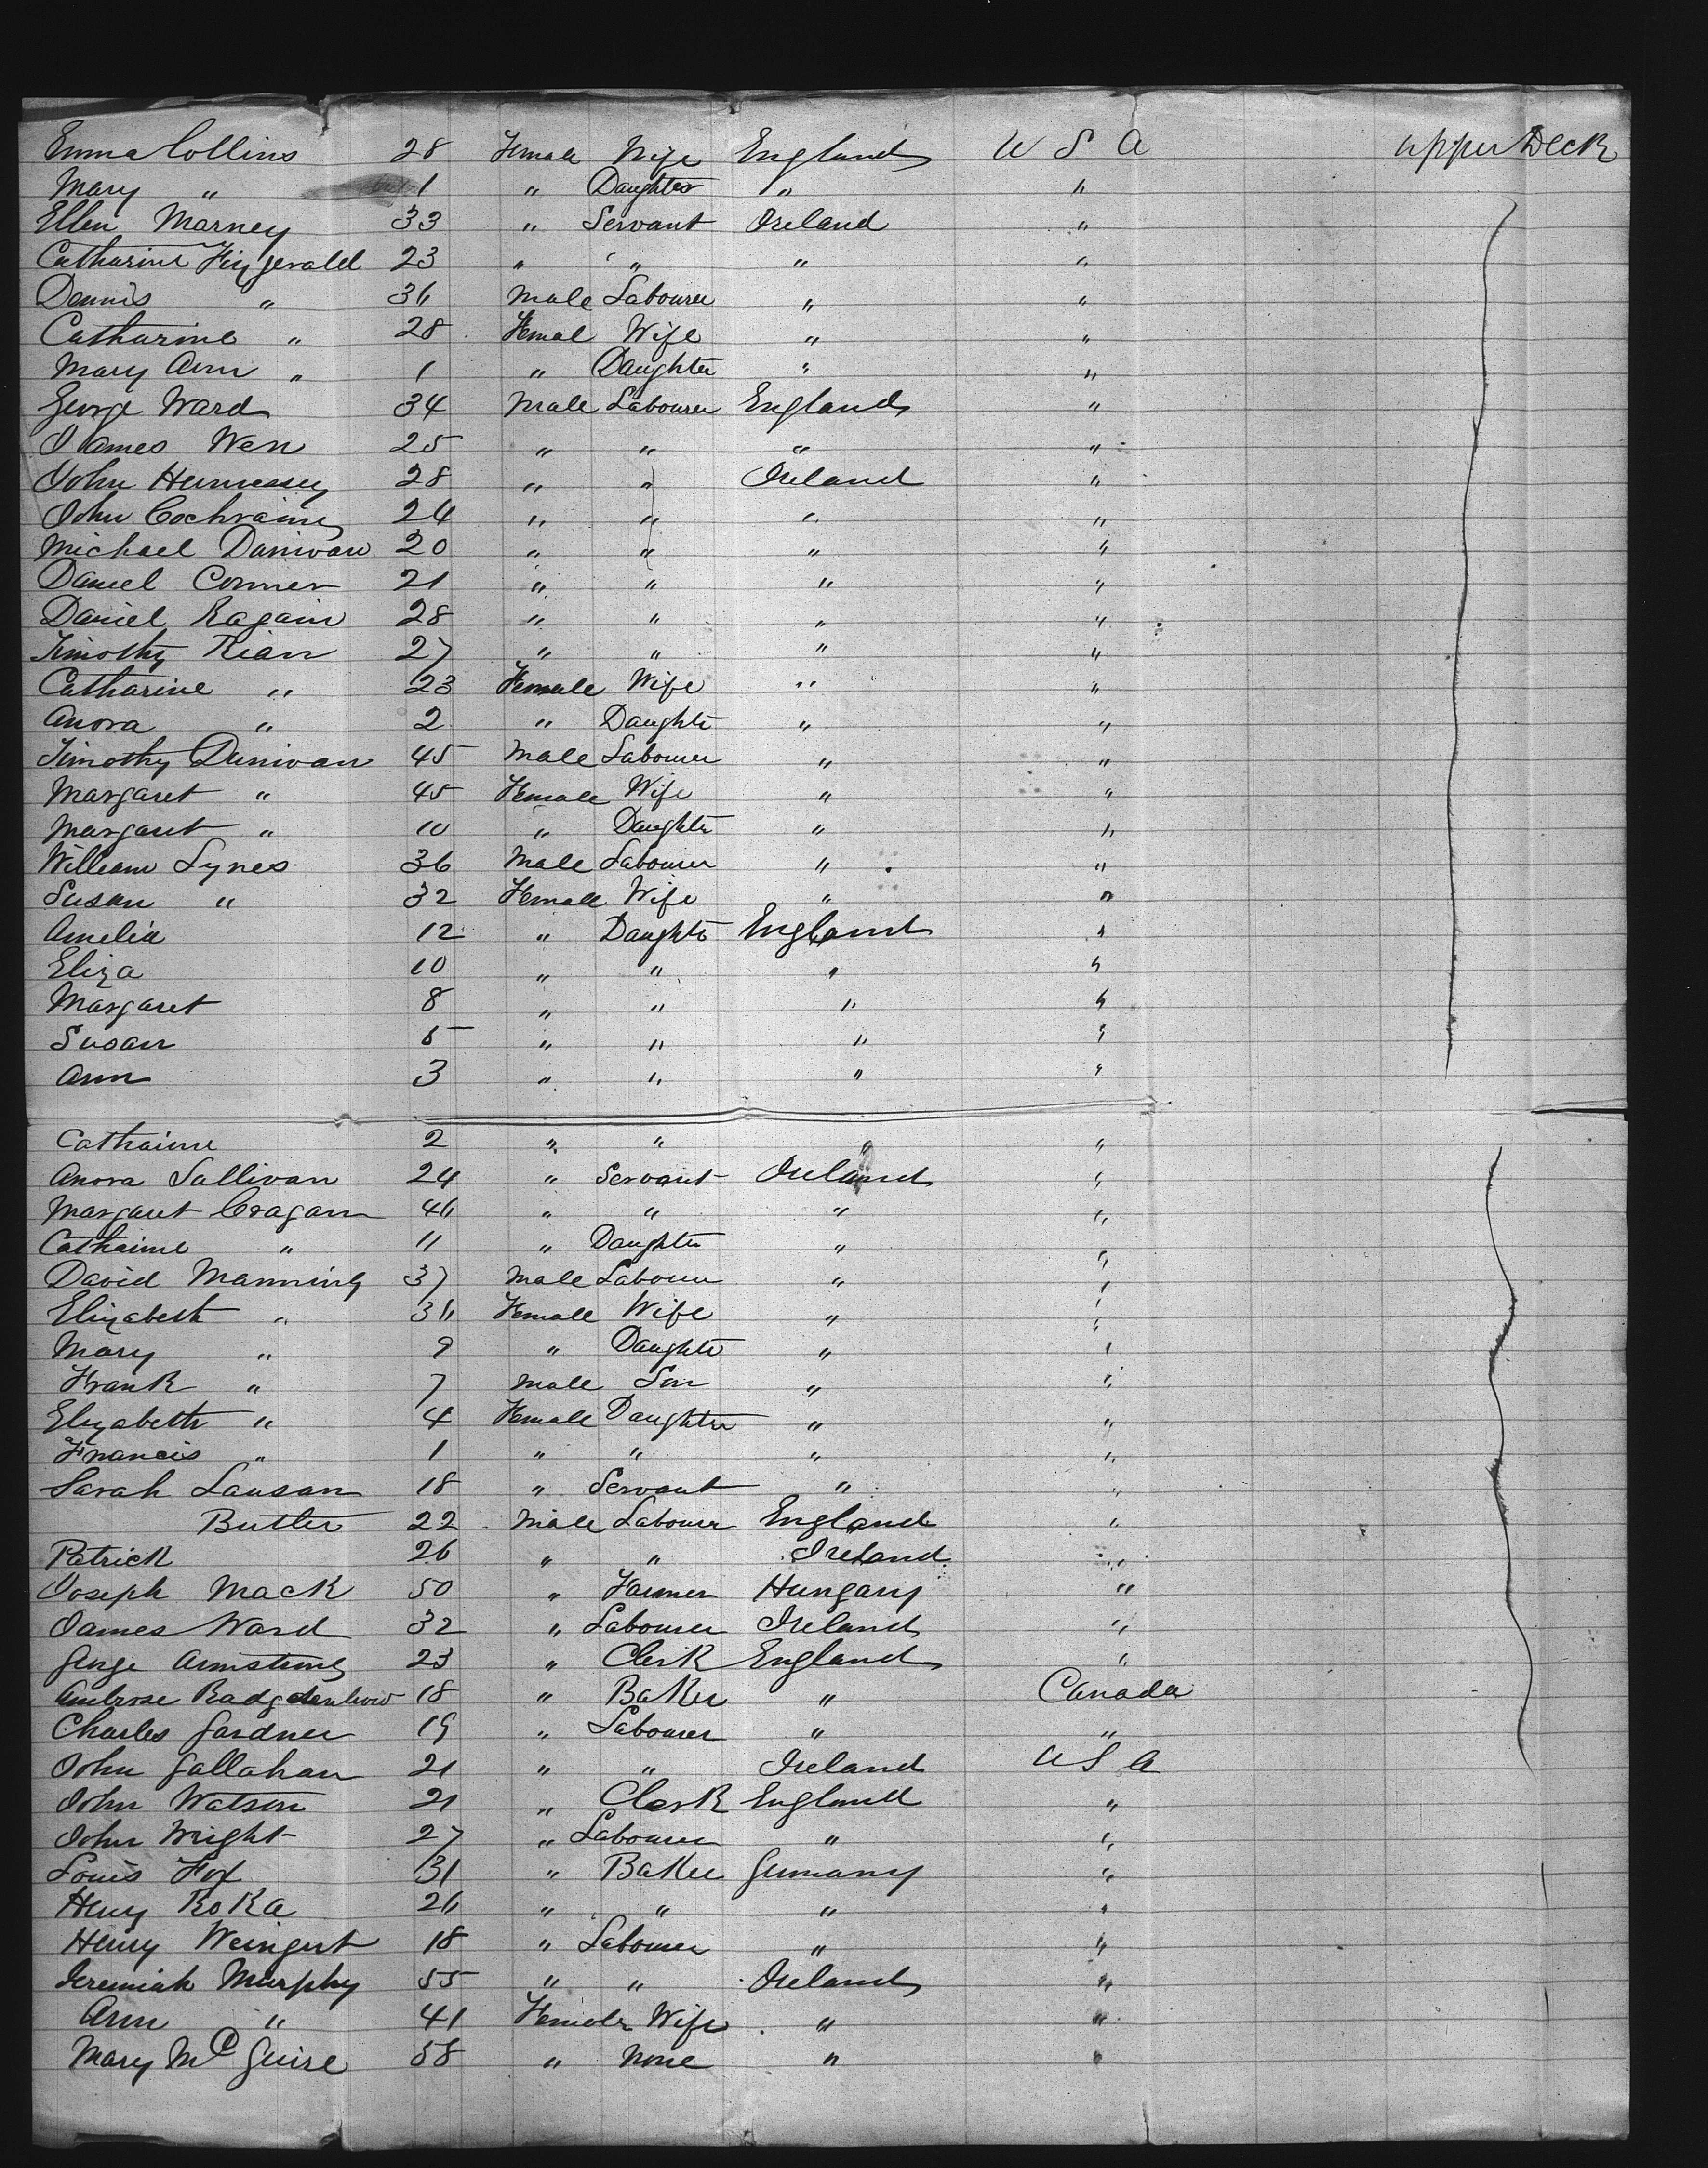 Emma Collins 28 Female Wife England U S A Upper Deck
Mary " 1 " Daughter " "
Ellen Marney 33 " Servant Ireland "
Catharine Fizgerald 23 " " " "
Dennis " 36 Male Labourer " "
Catharine " 28 Femal Wife " "
Mary Ann " 1 " Daughter " "
George Ward 34 Male Labourer England "
James Wen 25 " " " "
John Hennessey 28 " " Ireland "
John Cochraine 24 " " " "
Michael Danivan 20 " " " "
Daniel Conner 21 " " " "
Daniel Ragain 28 " " " "
Timothy Rian 27 " " " "
Catharine " 23 Female Wife " "
Anora " 2 " Daughter " "
Timothy Dunivan 45 Male Labourer " "
Margaret " 45 Female Wife " "
Margaret " 10 " Daughter " "
William Lynes 36 Male Labourer " "
Susan " 32 Female Wife " "
Amelia 12 " Daughtr England "
Eliza 10 " " " "
Margaret 8 " " " "
Susan 5 " " " "
Ann 3 " " " "
Cathaine 2 " " " "
Anora Sullivan 24 " Servant Ireland "
Margaret Cragan 46 " " " "
Cathaine " 11 " Daughter " "
David Manning 37 Male Labourer " "
Elizabeth " 36 Female Wife " "
Mary " 9 " Daughtr " "
Frank " 7 Male Son " "
Elizabeth " 4 Female Daughter " "
Francis " 1 " " " "
Sarah Lausan 18 " Servant " "
Butler 22 Male Labourer England "
Patrick 26 " " Ireland "
Joseph Mack 50 " Farmer Hungary "
James Ward 32 " Labourer Ireland "
Geoge Armstrong 23 " Clerk England "
Ambrose 18 " Baker " Canada
Charles Gardner 19 " Labourer " "
John Gallahan 21 " " Ireland U S A
John Watson 21 " Clerk England "
John Wright 27 " Labourer " "
Louis Fox 31 " Baker Germany "
Henry RoKa 26 " " " "
Henry Weingert 18 " Labourer " "
Jeremiah Murphy 55 " " Ireland "
Ann " 41 Female Wife " "
Mary McGuire 58 " None " "